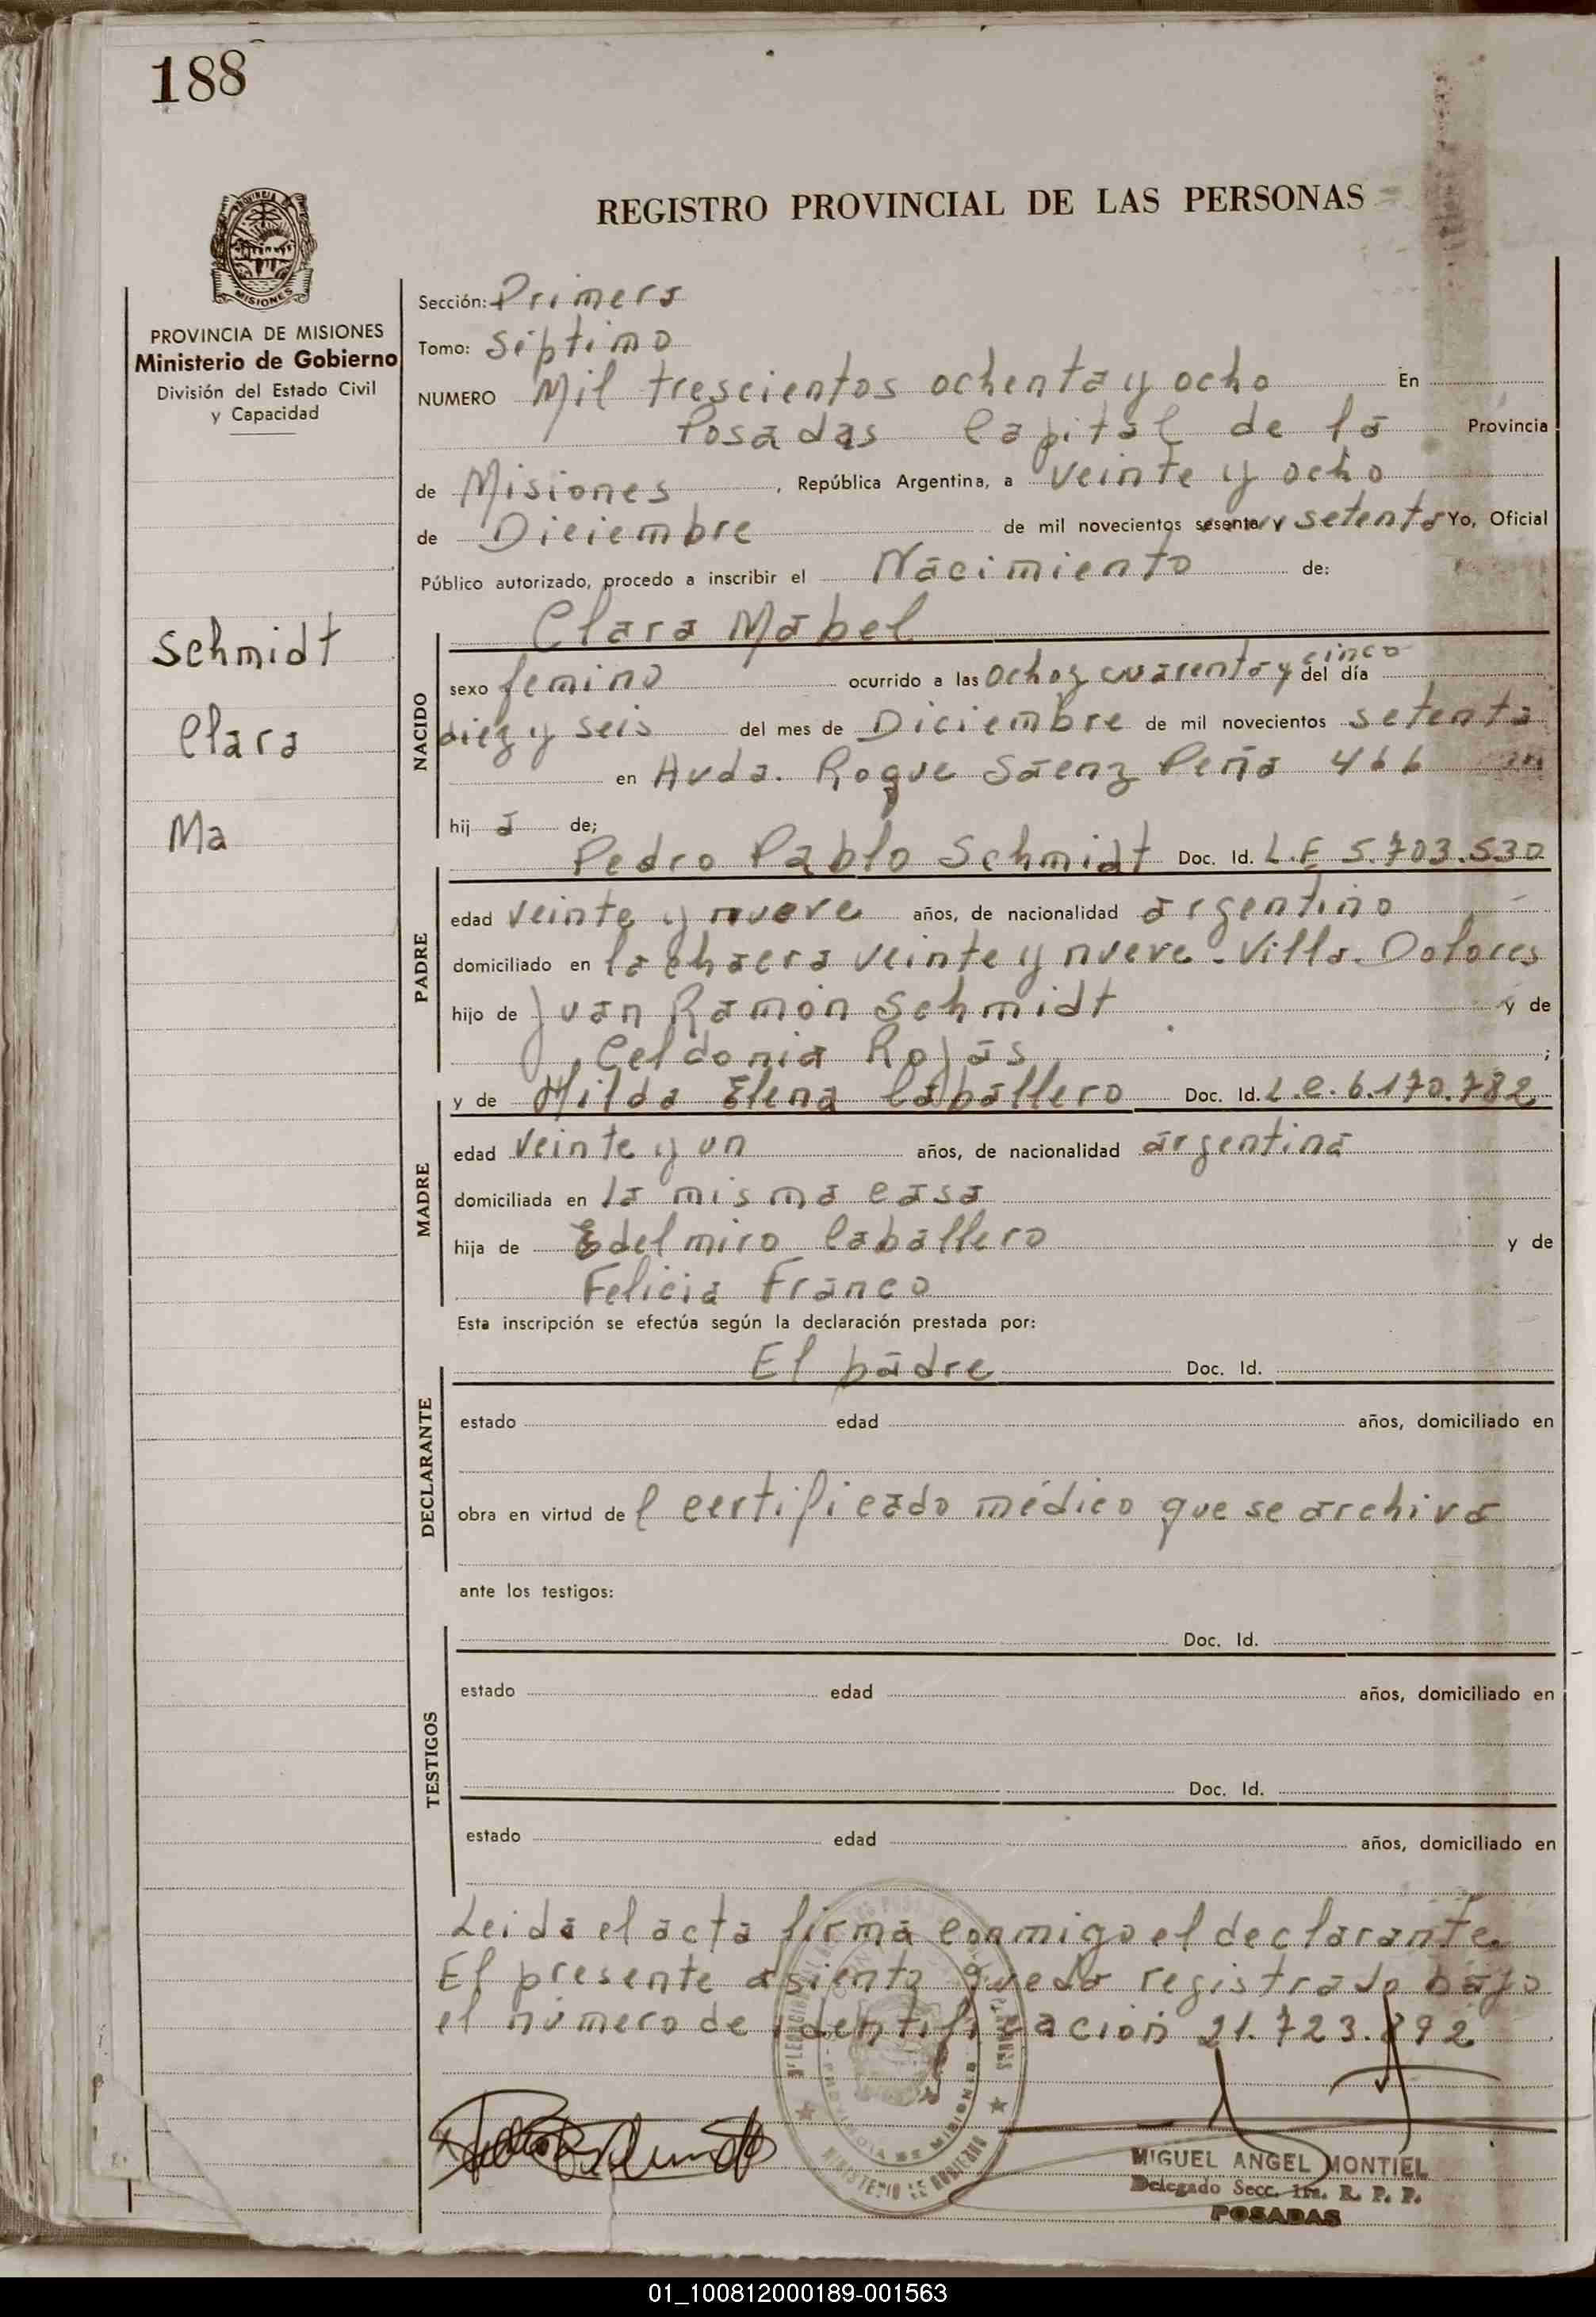 188
REGISTRO PROVINCIAL DE LAS PERSONAS
MISIONES
PROVINCIA DE MISIONES
Ministerio de Gobierno
División del Estado Civil
y Capacidad
Schmidt
Clara
Ma
Sección: Primera
Tomo: Séptimo
NUMERO Mil trescientos ochenta y ocho En
Posadas Capital de la Provincia
de Misiones , República Argentina, a veinte y ocho
de Diciembre de mil novecientos sesenta y setenta Yo, Oficial
Público autorizado, procedo a inscribir el Nacimiento de:
Clara Mabel
NACIDO
sexo femino ocurrido a las ocho y cuarenta y cinco del día
diez y seis del mes de Diciembre de mil novecientos setenta
en Avda. Roque Sáenz Peña 466
hij a de;
Pedro Pablo Schmidt Doc. Id. L.E 5.703.530
PADRE
edad veinte y nueve años, de nacionalidad argentino
domiciliado en la chacra veinte y nueve - Villa Dolores
hijo de Juan Ramón Schmidt y de
Celdonia Rojas ;
y de Hilda Elena Caballero Doc. Id. L.C. 6.170.782
MADRE
edad veinte y un años, de nacionalidad argentina
domiciliada en la misma casa
hija de Edelmiro Caballero y de
Felicia Franco
Esta inscripción se efectúa según la declaración prestada por:
El padre Doc. Id.
DECLARANTE
estado edad años, domiciliado en
obra en virtud de l certificado médico que se archiva
ante los testigos:
Doc. Id.
TESTIGOS
estado edad años, domiciliado en
Doc. Id.
estado edad años, domiciliado en
Leida el acta firma conmigo el declarante.
El presente asiento queda registrado bajo
el número de identificación 21.723.892
MIGUEL ANGEL MONTIEL
Delegado Secc. 1ra. R. P. P.
POSADAS
01_100812000189-001563